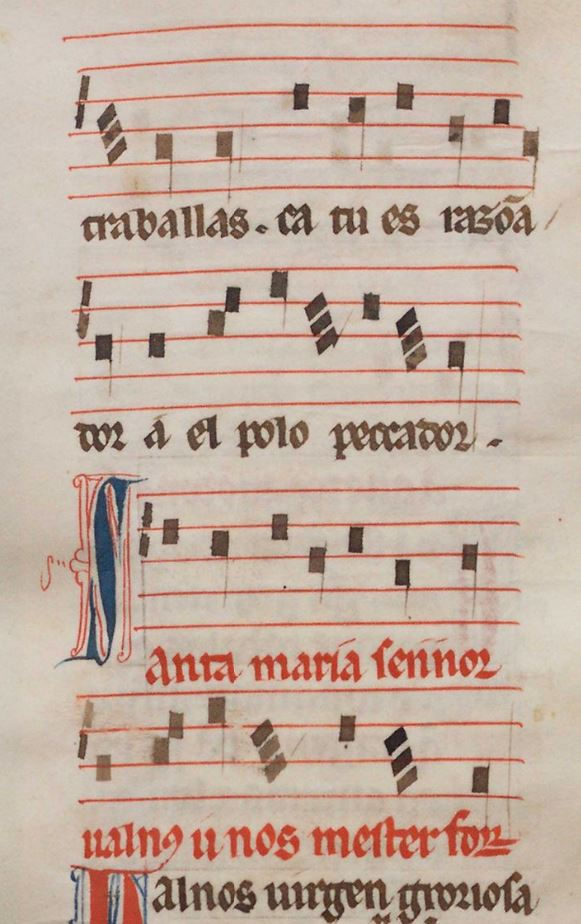 traballas. ca tu es razõa
dor a el polo peccador.
Santa maria sennor
ualnꝯ u nos mester for
Ualnos uirgen groriosa